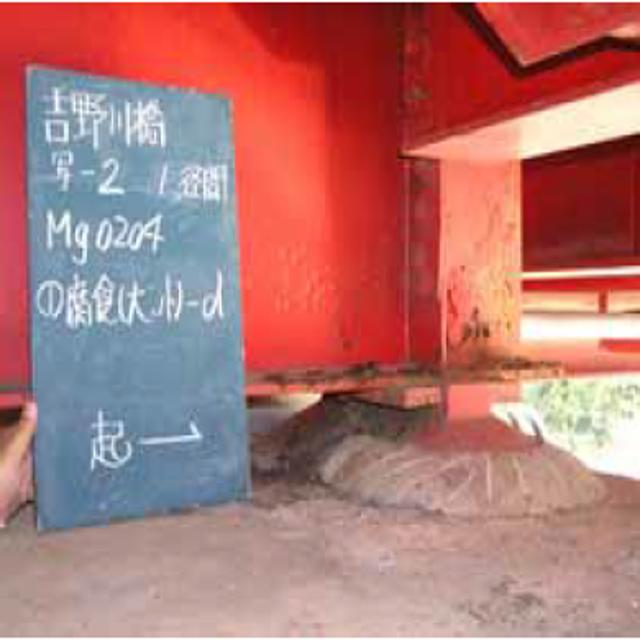 吉野川橋
写-2 1径間
Mg0204
①腐食(大小)-d
起→